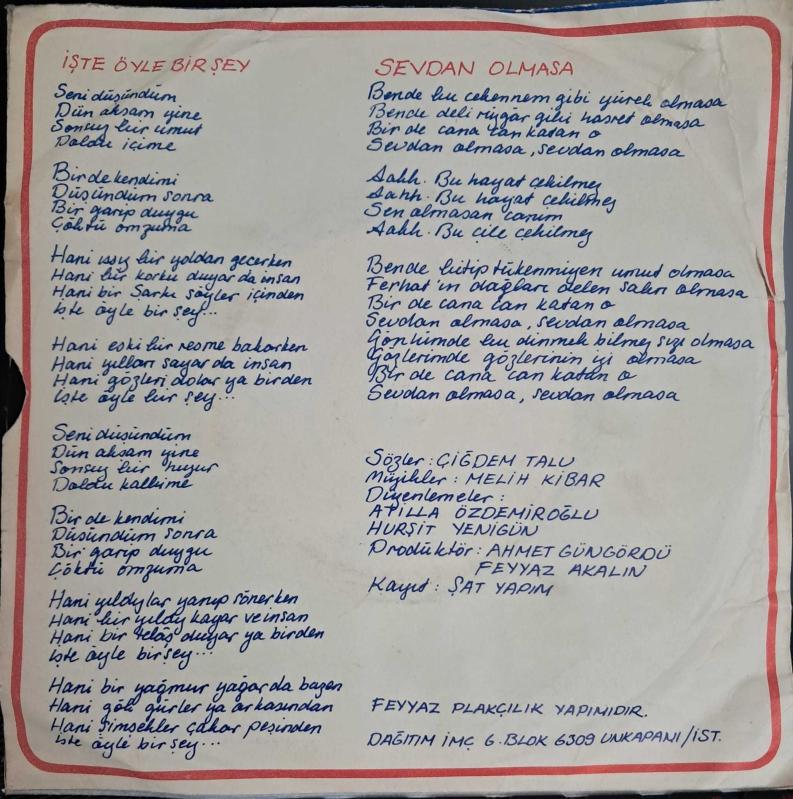 İŞTE ÖYLE BİR ŞEY
Seni düşündüm
Dün akşam yine
Sonsuz bir umut
Doldu içime
Birde kendimi
Düşündüm sonra
Bir garip duygu
Çöktü omzuma
Hani ıssız bir yoldan geçerken
Hani bir korku duyar da insan
Hani bir şarkı söyler içinden
İşte öyle bir şey...
Hani eski bir resme bakarken
Hani yılları sayar da insan
Hani gözleri dolar ya birden
İşte öyle bir şey...
Seni düşündüm
Dün akşam yine
Sonsuz bir huzur
Doldu kalbime
Birde kendimi
Düşündüm sonra
Bir garip duygu
Çöktü omzuma
Hani yıldızlar yanıp sönerken
Hani bir yıldız kayar ve insan
Hani bir telâş duyar ya birden
İşte öyle bir şey...
Hani bir yağmur yağar da bazen
Hani gök gürler ya arkasından
Hani şimşekler çakar peşinden
İşte öyle bir şey...
SEVDAN OLMASA
Bende bu cehennem gibi yürek olmasa
Bende deli rüzgâr gibi hasret olmasa
Bir de cana can katan o
Sevdan olmasa, sevdan olmasa
Aahh. Bu hayat çekilmez
Aahh. Bu hayat çekilmez
Sen olmasan canım
Aahh. Bu çile çekilmez
Bende bitip tükenmiyen umut olmasa
Ferhat'ın dağları delen sabrı olmasa
Bir de cana can katan o
Sevdan olmasa, sevdan olmasa
Gönlümde bu dinmek bilmez sızı olmasa
Gözlerimde gözlerinin izi olmasa
Bir de cana can katan o
Sevdan olmasa, sevdan olmasa
Sözler: ÇİĞDEM TALU
Müzikler: MELİH KİBAR
Düzenlemeler:
ATİLLA ÖZDEMİROĞLU
HURŞİT YENİGÜN
Prodüktör: AHMET GÜNGÖRDÜ
FEYYAZ AKALIN
Kayıt: ŞAT YAPIM
FEYYAZ PLAKÇILIK YAPIMIDIR.
DAĞITIM İMÇ 6. BLOK 6309 UNKAPANI/İST.